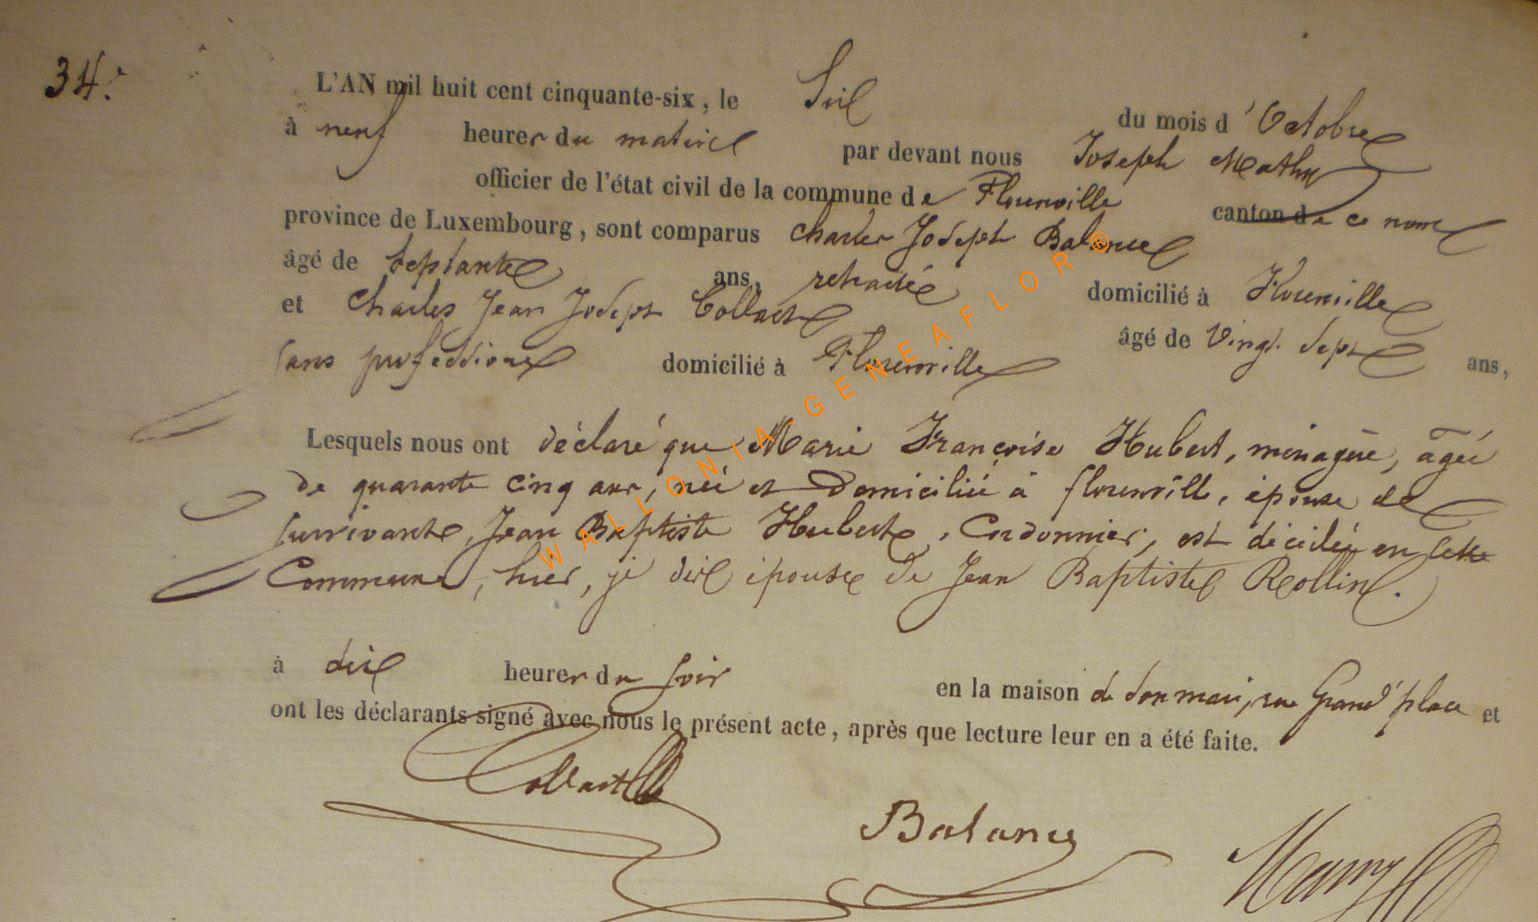 34.
L'AN mil huit cent cinquante-six, le Six du mois d'Octobre
à neuf heures du matin par devant nous Joseph Mathy
officier de l'état civil de la commune de Florenville canton de ce nom
province de Luxembourg, sont comparus Charles Joseph Balance
âgé de septante ans, retraité domicilié à Florenville
et Charles Jean Joseph Collart âgé de Vingt sept ans,
sans profession domicilié à Florenville
Lesquels nous ont déclaré que Marie Françoise Hubert, ménagère, âgée
de quarante cinq ans, née et Domiciliée à florenville, épouse
survivante, Jean Baptiste Hubert, Cordonnier, est décédée en cette
Commune, hier, je dis épouse de Jean Baptiste Rollin.
à dix heures du soir en la maison de son mari, rue Grand'place et
ont les déclarants signé avec nous le présent acte, après que lecture leur en a été faite.
Collart
Balance
WALLONIA-GENEAFLOR©